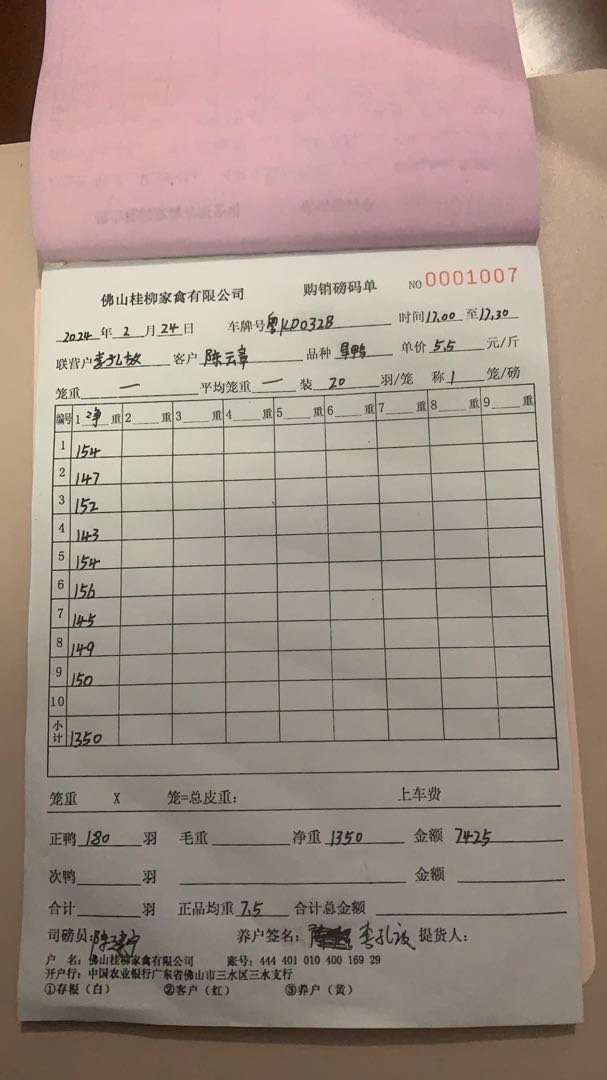 佛山桂柳家禽有限公司 购销磅码单 NO 0001007
2024年2月24日 车牌号粤KD032B 时间17.00至17.30
联营户李孔 客户陈云章 品种 鸭 单价5.5元/斤
笼重 一 平均笼重 一 装 20 羽/笼 称 1 笼/磅
编号 1净重 2重 3重 4重 5重 6重 7重 8重 9重
1 154
2 147
3 152
4 143
5 154
6 156
7 145
8 149
9 150
10
小计 1350
笼重 X 笼=总皮重: 上车费
正鸭 180 羽 毛重 净重 1350 金额 7425
次鸭 羽 金额
合计 羽 正品均重 7.5 合计总金额
司磅员: 养户签名: 李孔 提货人:
户 名: 佛山桂柳家禽有限公司 账号: 444 401 010 400 169 29
开户行: 中国农业银行广东省佛山市三水区三水支行
①存根(白) ②客户(红) ③养户(黄)